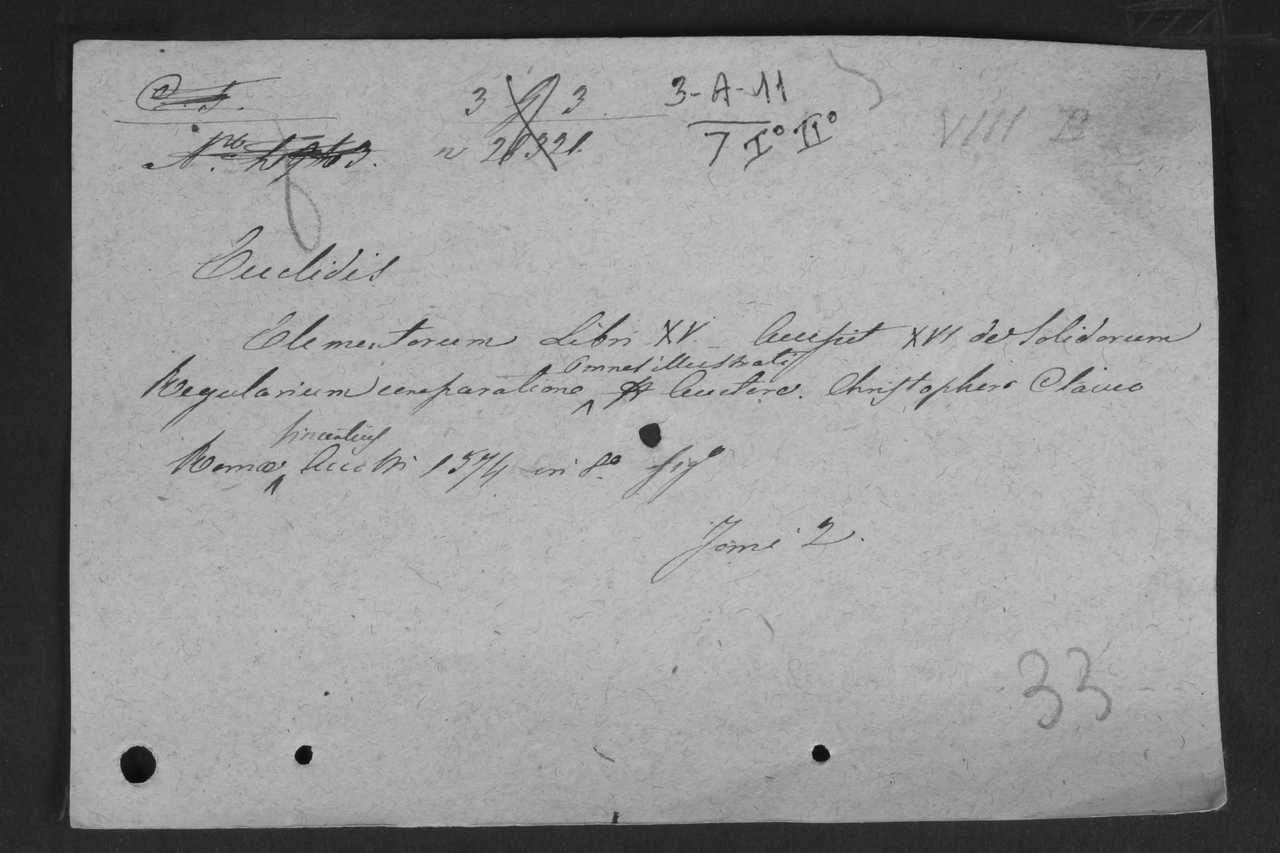 3 9 3
3-A-11
n 26321.
7 I° II°
VIII B
Euclidis
Elementorum Libri XV. Accesit XVI de Solidorum
omnes illustrati
Regularium comparatione Auctore. Christophoro Clavio
Vincentius
Romæ, Accolti 1574 in 8° fig°
Tomi 2.
33